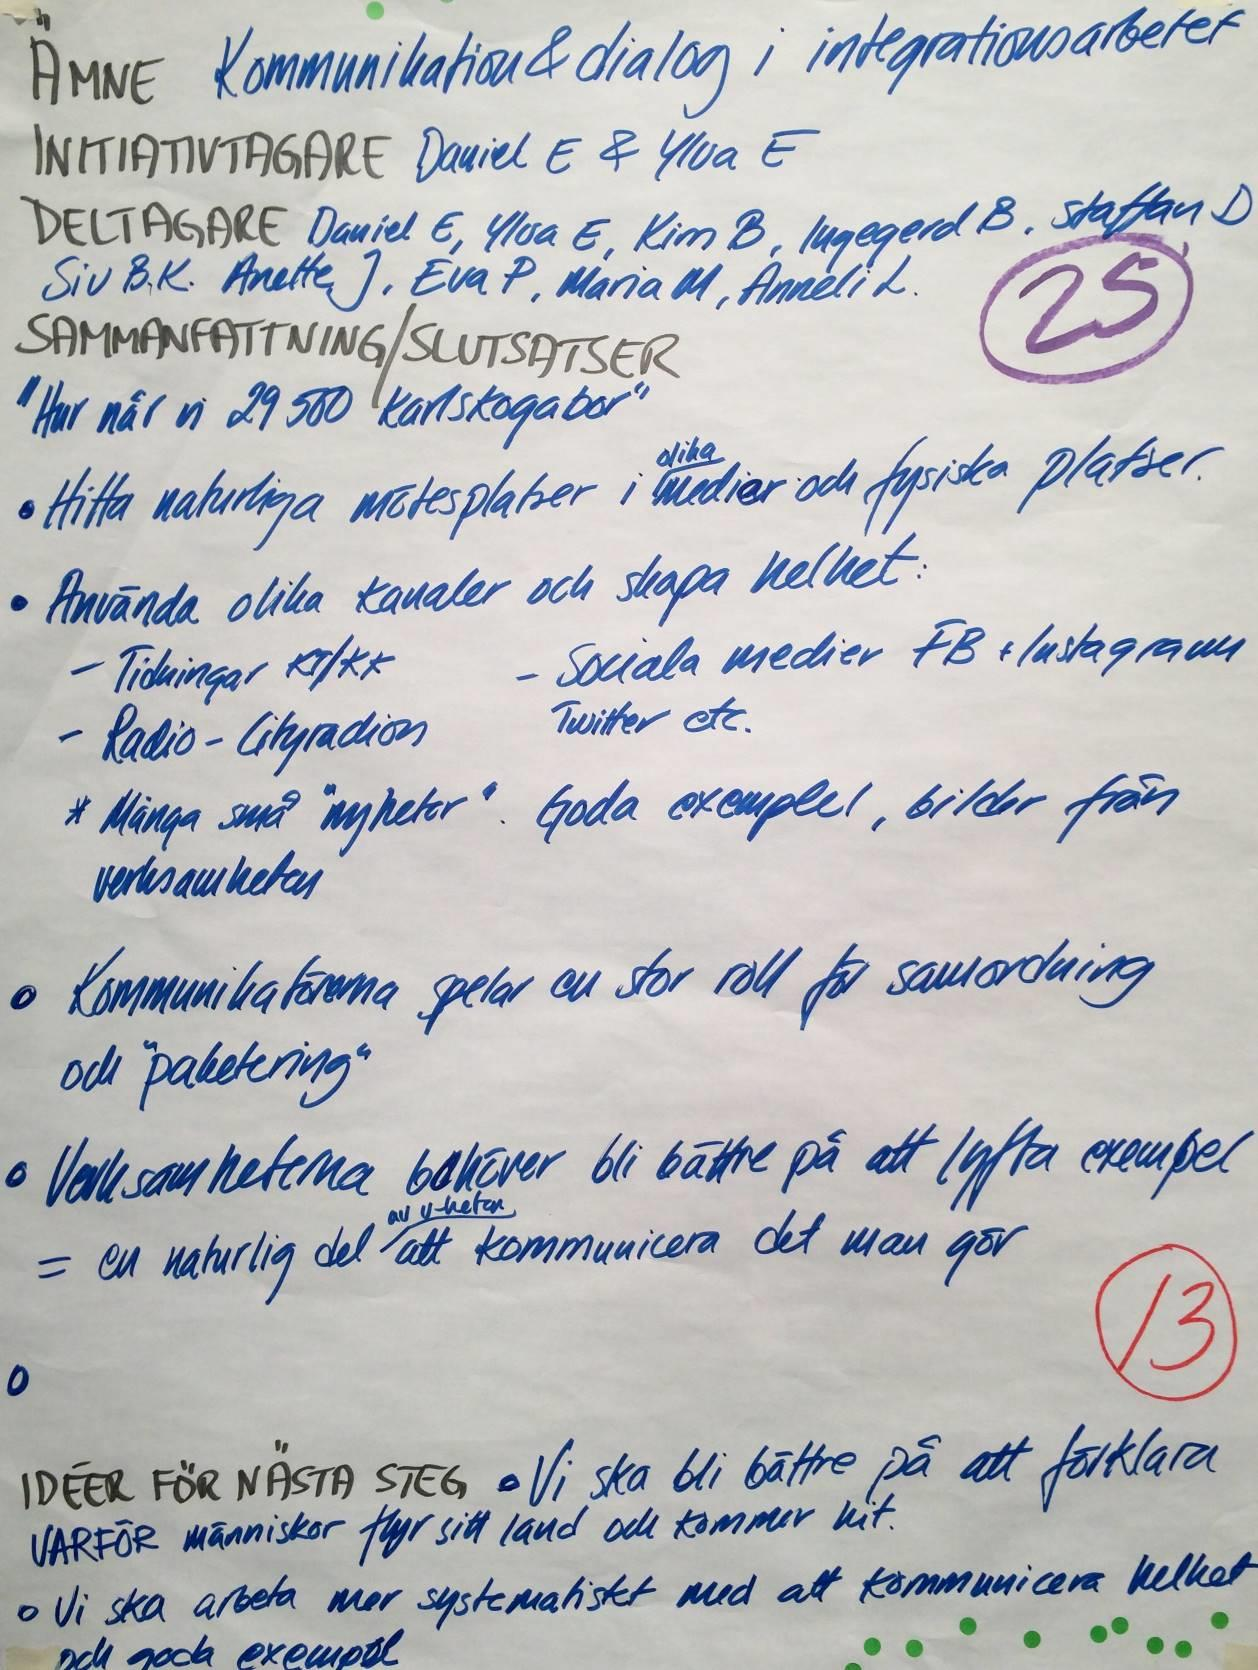 ÄMNE Kommunikation & dialog i integrationsarbetet
INITIATIVTAGARE Daniel E & Ylva E
DELTAGARE Daniel E, Ylva E, Kim B, Ingegerd B, Staffan D
Siv B.K. Anette J, Eva P, Maria M, Anneli L.
25
SAMMANFATTNING/SLUTSATSER
"Hur når vi 29 500 Karlskogabor"
• Hitta naturliga mötesplatser i olika medier och fysiska platser.
• Använda olika kanaler och skapa helhet:
- Tidningar KT/KK
- Sociala medier FB + Instagram
Twitter etc.
- Radio - Cityradion
* Många små "nyheter". Goda exempel, bilder från
verksamheten
• Kommunikatörerna spelar en stor roll för samordning
och "paketering"
• Verksamheterna behöver bli bättre på att lyfta exempel
= en naturlig del av v-heten att kommunicera det man gör
13
IDÉER FÖR NÄSTA STEG • Vi ska bli bättre på att förklara
VARFÖR människor flyr sitt land och kommer hit.
• Vi ska arbeta mer systematiskt med att kommunicera helhet
och goda exempel